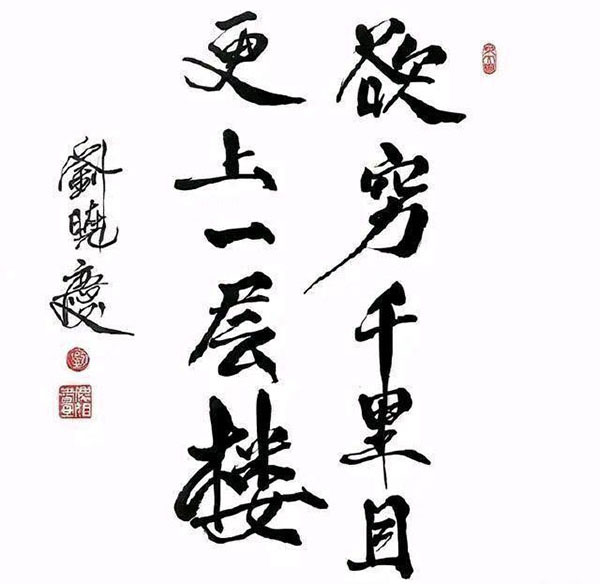 欲穷千里目
更上一层楼
劉曉慶